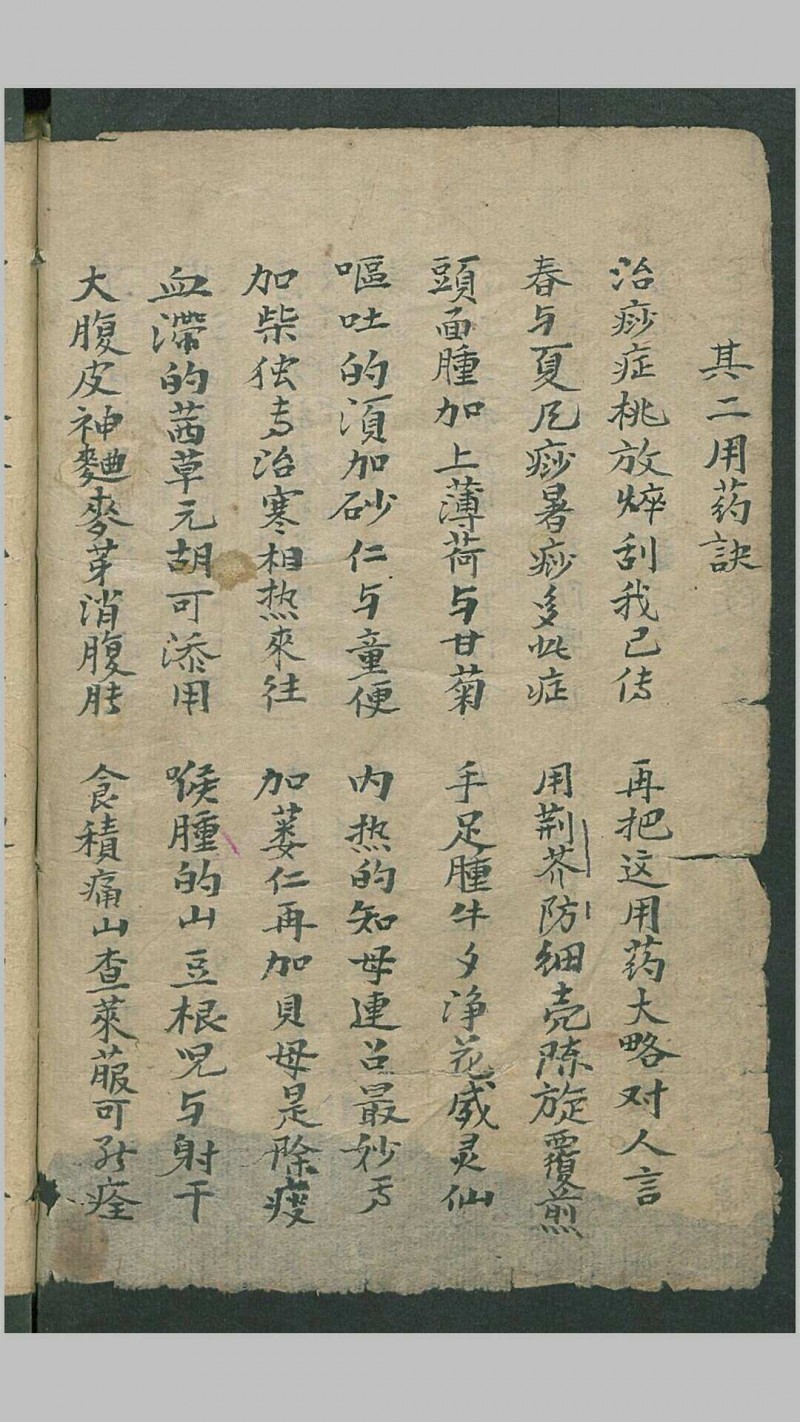 其二用药訣
治痧症桃放焠刮我已传 再把这用药大略对人言
春与夏凡痧暑痧多此症 用荆芥防细壳陈旋覆煎
頭面腫加上薄荷与甘菊 手足腫牛夕净花威灵仙
嘔吐的湏加砂仁与童便 内热的知母連召最妙
加柴独 治寒相热來往 加蒌仁再加貝母是除
血滞的茜草元胡可添用 喉腫的山豆根児与射干
大腹皮神麯麥芽消腹胀 食積痛山查萊菔可 痊